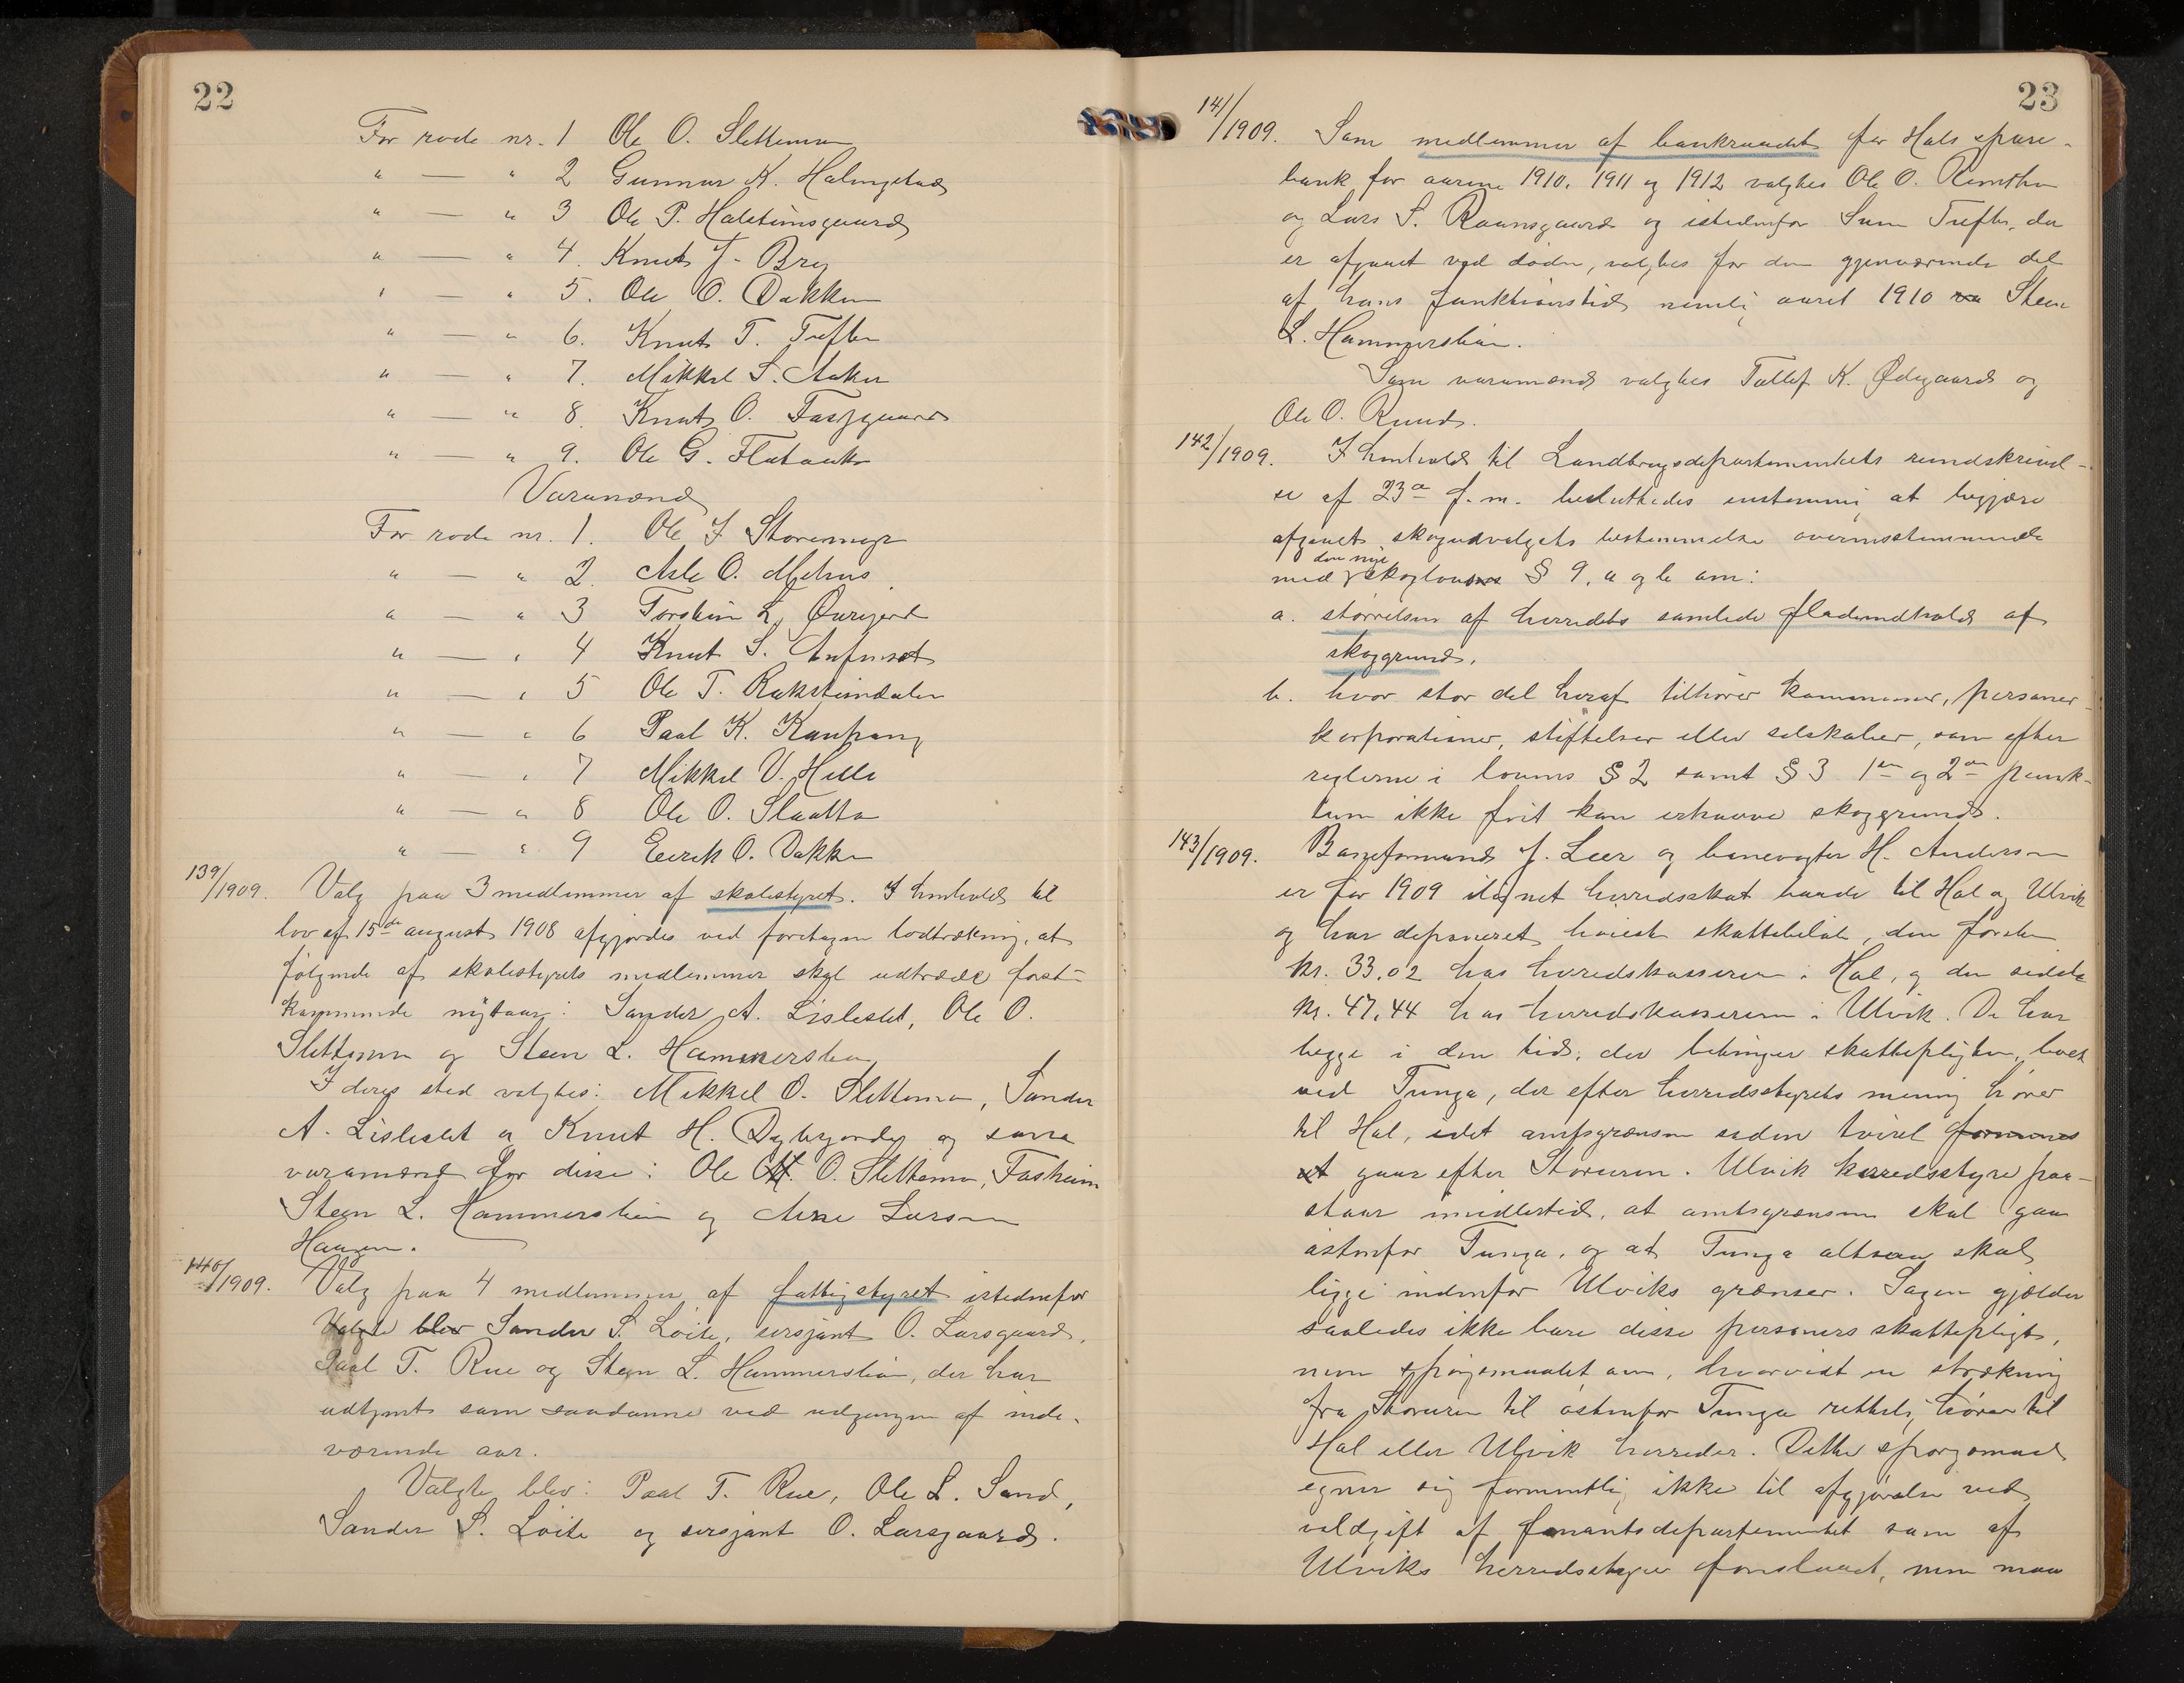 22
For rode nr. 1 Ole O. Slettemoen
" — " 2 Gunnar K. Halingstad
" — " 3 Ole P. Halstensgaard
" — " 4. Knut J. Bry
" — " 5. Ole O. Dokken
" — " 6. Knut T. Tufte
" — " 7. Mikkel S. Aaker
" — " 8. Knut O.
" — " 9. Ole G. Flataaker
Varamænd
For rode nr. 1. Ole I Storemyr
" — " 2. Asle O. Mehus
" — " 3 Torstein L.
" — " 4 Knut S.
" — " 5 Ole T. Raksteindalen
" — " 6 Paal K. Kaupang
" — " 7 Mikkel V. Helle
" — " 8 Ole O. Slaatto
" — " 9 Eerik O. Dokken
139/1909. Valg paa 3 medlemmer af skolestyret. I henhold til
lov af 15de august 1908 afgjordes ved foretagen lodtrækning, at
følgende af skolestyrets medlemmer skal udtræde først-
kommende nytaar: Sander A. Lislestøl, Ole O.
Slettemoen og Steen L. Hammersbøen
I deres sted valgtes: Mikkel O. Slettemoen, Sander
A. Lislestøl og Knut H. Dybsjordy og som
varamænd for disse: Ole O. Slettemoen,
Steen L. Hammersbøen og Arne Larsen
Haugen.
140/1909. Valg paa 4 medlemmer af fattigstyret istedenfor
Valgte blev Sander S. Løite, sersjant O. Larsgaard,
Paal T. Rue og Steen L. Hammersbøen, der har
udtjent som saadanne ved udgangen af inde-
værende aar.
Valgte blev: Paal T. Rue, Ole L. Sand,
Sander S. Løite og sersjant O. Larsgaard.
23
141/1909. Som medlemmer af bankraadet for Hols spare-
bank for aarene 1910, 1911 og 1912 valgtes Ole O.
og Lars S. Raunsgaard og istedenfor Sven Tufte, der
er afgaaet ved døden, valgtes for den gjenværende del
af hans funktionstid nemlig aaret 1910 Steen
L. Hammersbøen.
Som varamænd valgtes Tollef K. Ødegaard og
Ole O. Ruud.
142/1909. I henhold til Landbrugsdepartementets rundskrivel-
se af 23de f.m. besluttedes enstemmig at begjære
afgivet skogudvalgets bestemmelse overensstemmende
med den nye skoglov § 9, a og b om:
a. størrelsen af herredets samlede fladeindhold af
skoggrund.
b. hvor stor del heraf tilhører kommuner, personer
korporationer, stiftelser eller selskaber, som efter
reglerne i lovens § 2 samt § 3 1ste og 2det punk-
tum ikke frit kan erhverve skoggrund.
143/1909. Basseformand J. Leer og banevogter H. Andersen
er for 1909 ilignet herredsskat baade til Hol og Ulvik
og har deponeret høieste skattebeløb, den første
kr. 33.02 hos herredskassereren i Hol, og den sidste
kr. 47.44 hos herredskassereren i Ulvik. De har
begge i den tid, der betinger skattepligten, boet
ved Tunga, der efter herredsstyrets mening hører
til Hol, idet amtsgrænsen uden tvivl formenes
at gaar efter Storuren. Ulvik herredsstyre paa-
staar imidlertid, at amtsgrænsen skal gaa
østenfor Tunga, og at Tunga altsaa skal
ligge indenfor Ulviks grænser. Sagen gjælder
saaledes ikke bare disse personers skattepligt,
men spørgsmaalet om, hvorvidt en strækning
fra Storuren til østenfor Tunga rettelig hører til
Hol eller Ulvik herreder. Dette spørgsmaal
egner sig formentlig ikke til afgjørelse ved
voldgift af finantsdepartementet som af
Ulviks herredsstyre foreslaaet, men maa